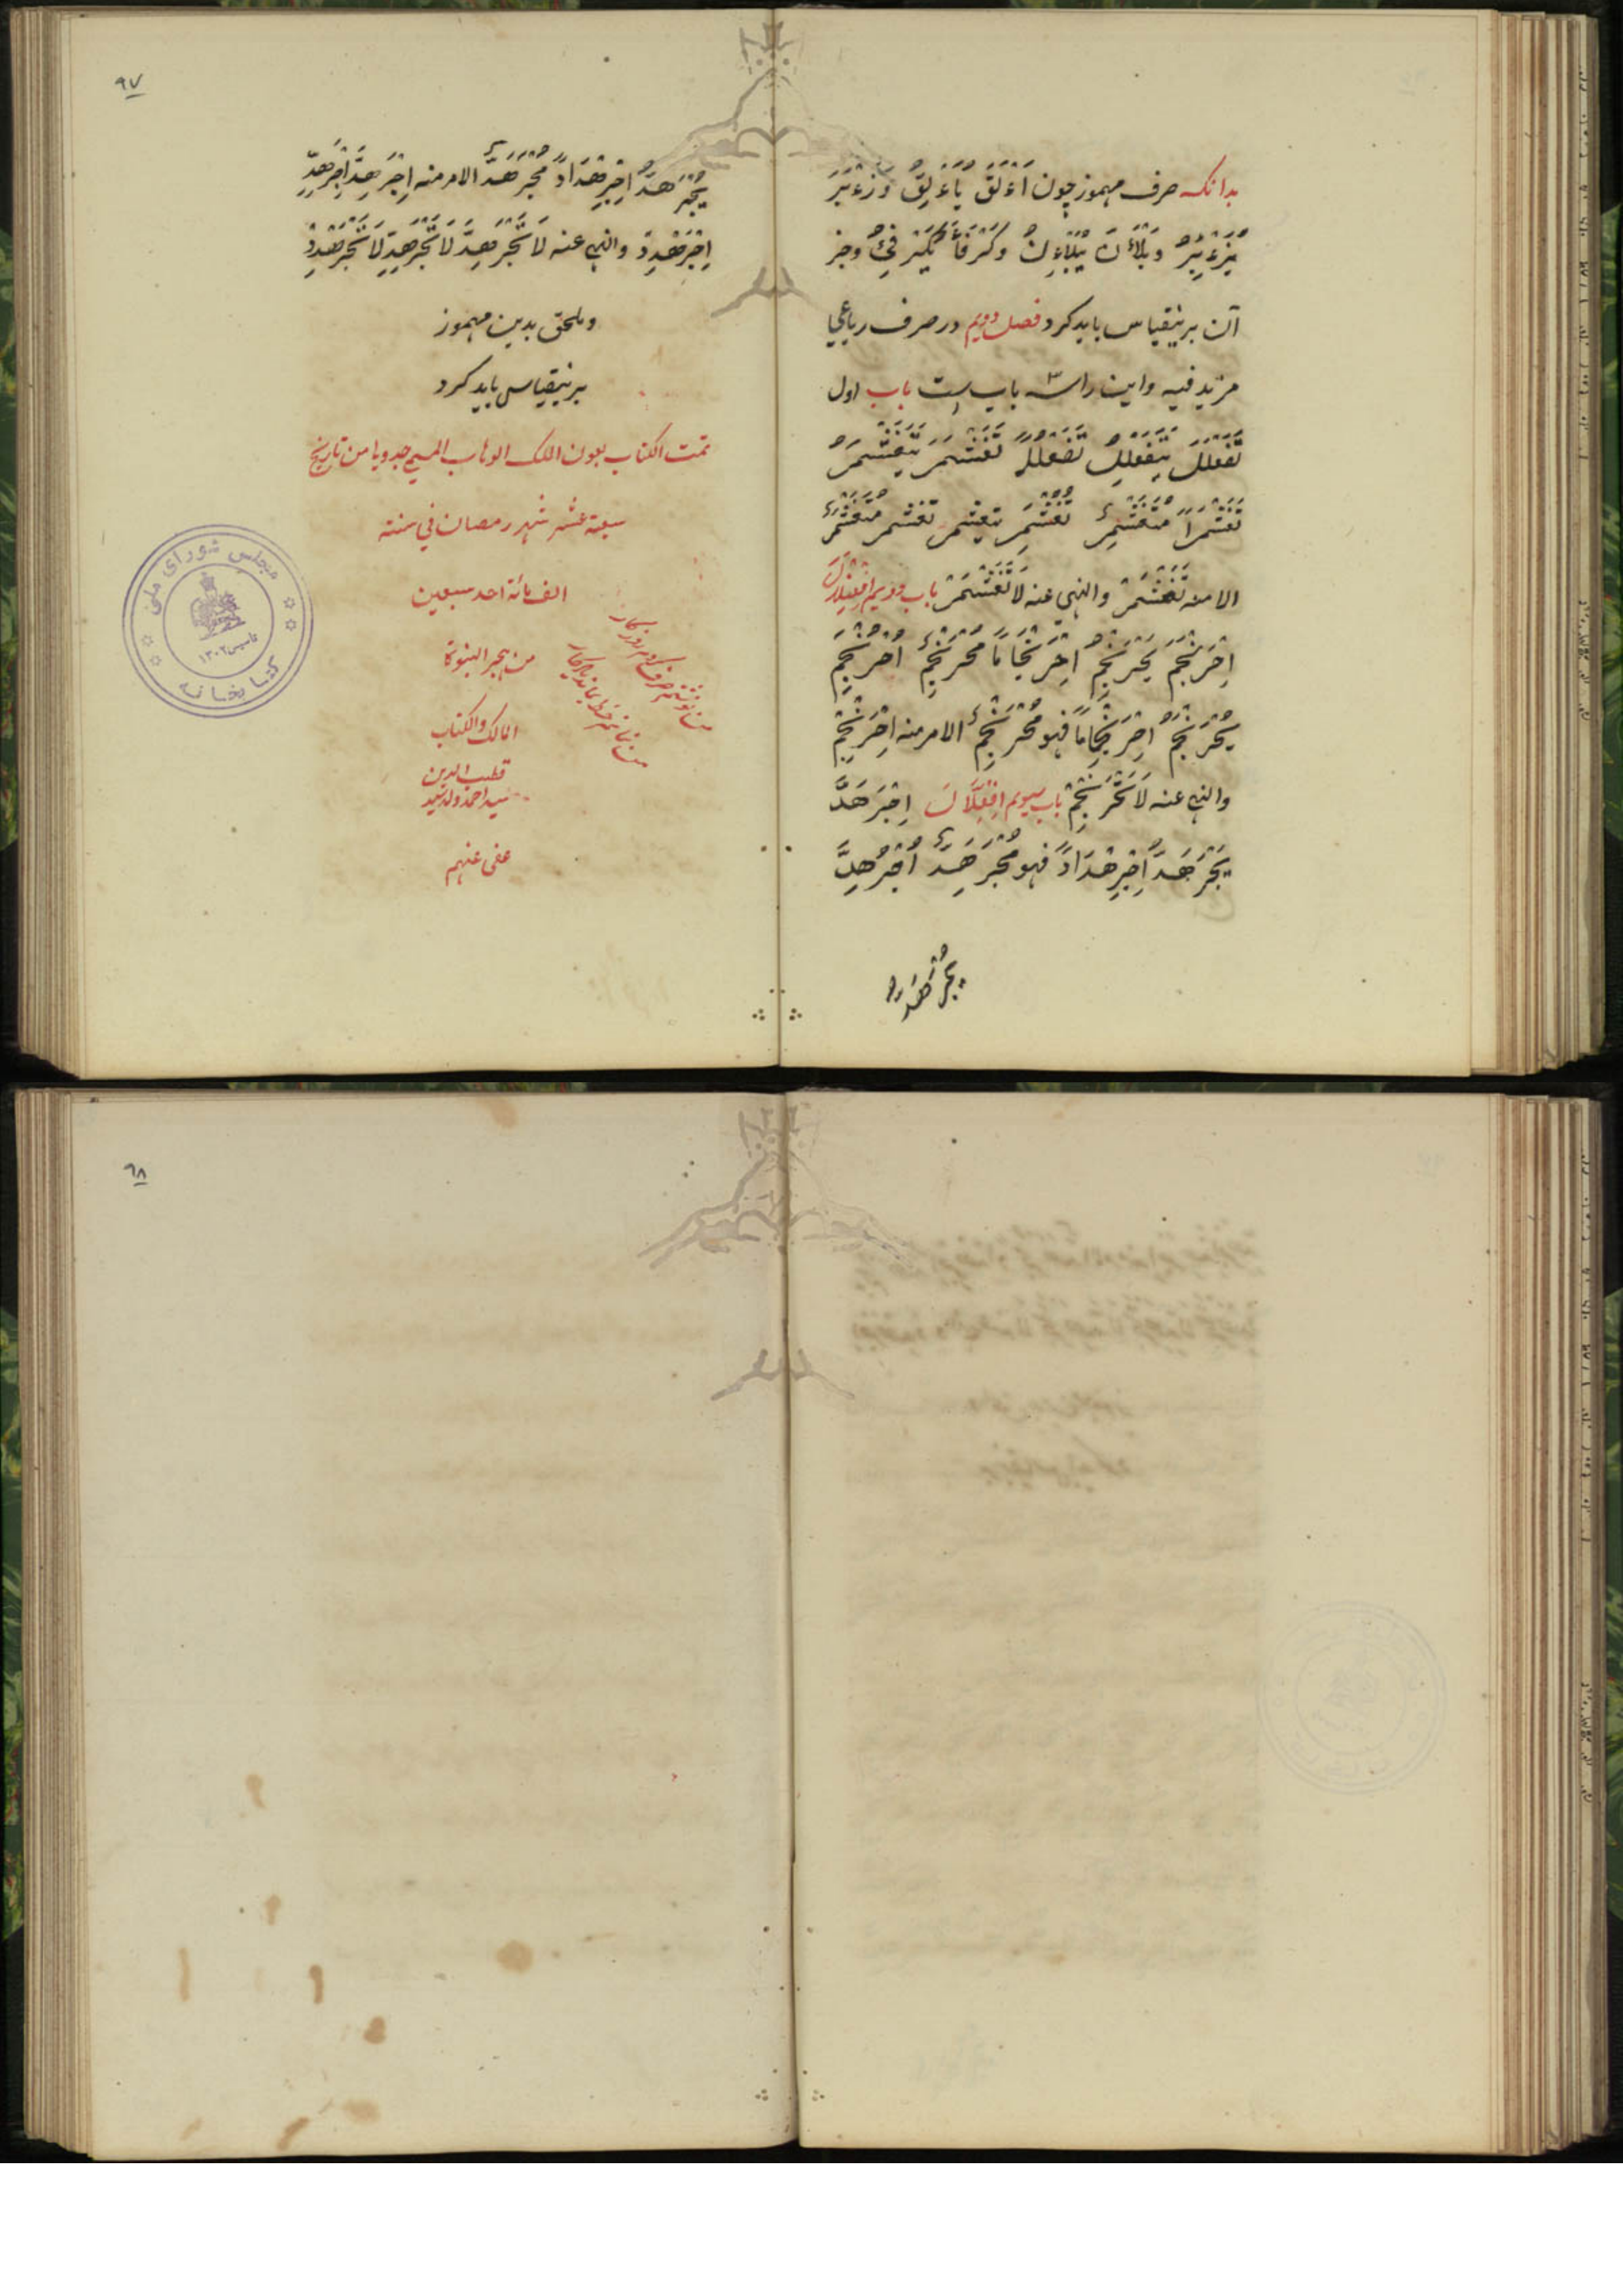 بدانکه صرف مهموز چون اَءْلَقَ يُاَءْلِقُ وَزَءْبَرَ
يُزَءْبِرُ وَبَلْأَنَ يُبَلْءِنُ وَكَرْفَأَ يُكَرْفِئُ وجز
آن برینقیاس باید کرد فصل دویم در صرف رباعی
مزید فیه و این را سه باب است باب اول
تَفَعْلَلَ يَتَفَعْلَلُ تَفَعْلُلاً تَغَشْمَرَ يَتَغَشْمَرُ
تَغَشْمُراً مُتَغَشْمِرٌ تُغُشْمِرَ يتغشمر تغشمر متغشمر
الامنه تَغَشْمَرْ والنهي عنه لَا تَغَشْمَرْ باب دویم اِفْعِنْلَالَ
اِحْرَنْجَمَ يَحْرَنْجِمُ اِحْرِنْجَاماً مُحْرَنْجِمٌ اُحْرُنْجِمَ
يُحْرَنْجَمُ اِحْرِنْجَاماً فهو مُحْرَنْجَمٌ الامر منه اِحْرَنْجِمْ
والنهي عنه لَا تَحْرَنْجِمْ باب سیوم اِفْعِلَّالَ اِجْرَهَدَّ
يَجْرَهِدُّ اِجْرِهْدَاداً فهو مُجْرَهِدٌّ اُجْرُهِدَّ
يُجْرَهَدُّ
٩٧
يُجْرَهَدُّ اِجْرِهْدَاداً مُجْرَهَدٌّ الامر منه اِجْرَهِدَّ اِجْرَهِدِّ
اِجْرَهْدِدْ والنهي عنه لَا تَجْرَهِدَّ لَا تَجْرَهِدِّ لَا تَجْرَهْدِدْ
وملحق بدین مهموز
برینقیاس باید کرد
تمت الکتاب بعون الملک الوهاب من تاریخ
سبعة عشر شهر رمضان في سنة
الف مائة احد سبعین
من هجر النبوة
المالک والکتاب
قطب الدین
سید احمد ولد سید
عفی عنهم
من نوشتم صرف کردم روزگار
من نمانم خط بماند یادگار
مجلس شورای ملی
تاسیس ١٣٠٢
کتابخانه
٩٨